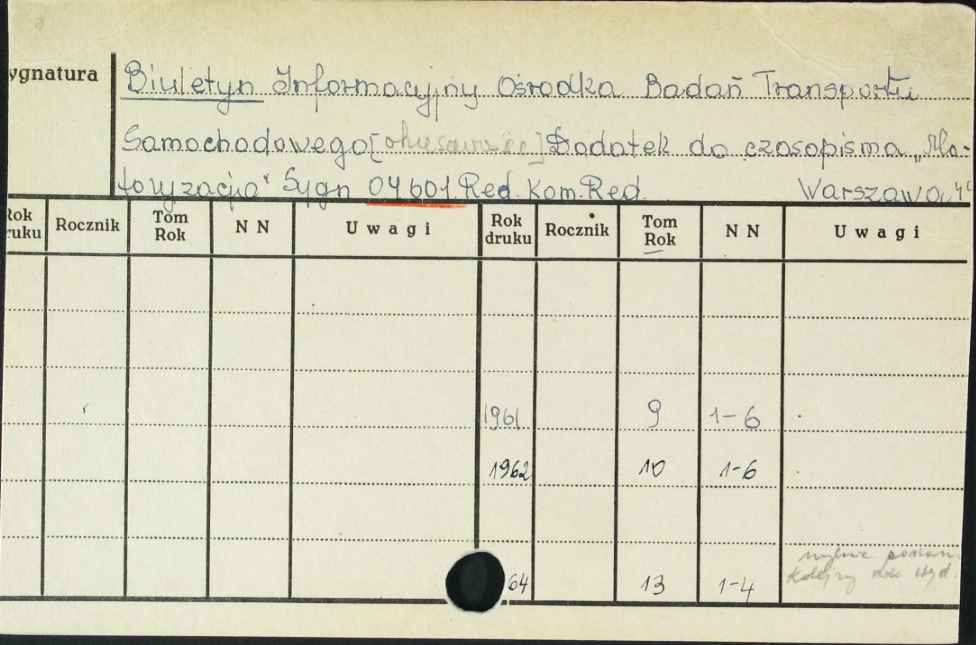 ygnatura Biuletyn Informacyjny Ośrodka Badań Transportu
Samochodowego [ ] Dodatek do czasopisma „Mo-
toryzacja" Sygn 04601 Red. Kom. Red. Warszawa
Rok druku Rocznik Tom Rok NN Uwagi Rok druku Rocznik Tom Rok NN Uwagi
1961 9 1-6
1962 10 1-6
mylnie
64 13 1-4